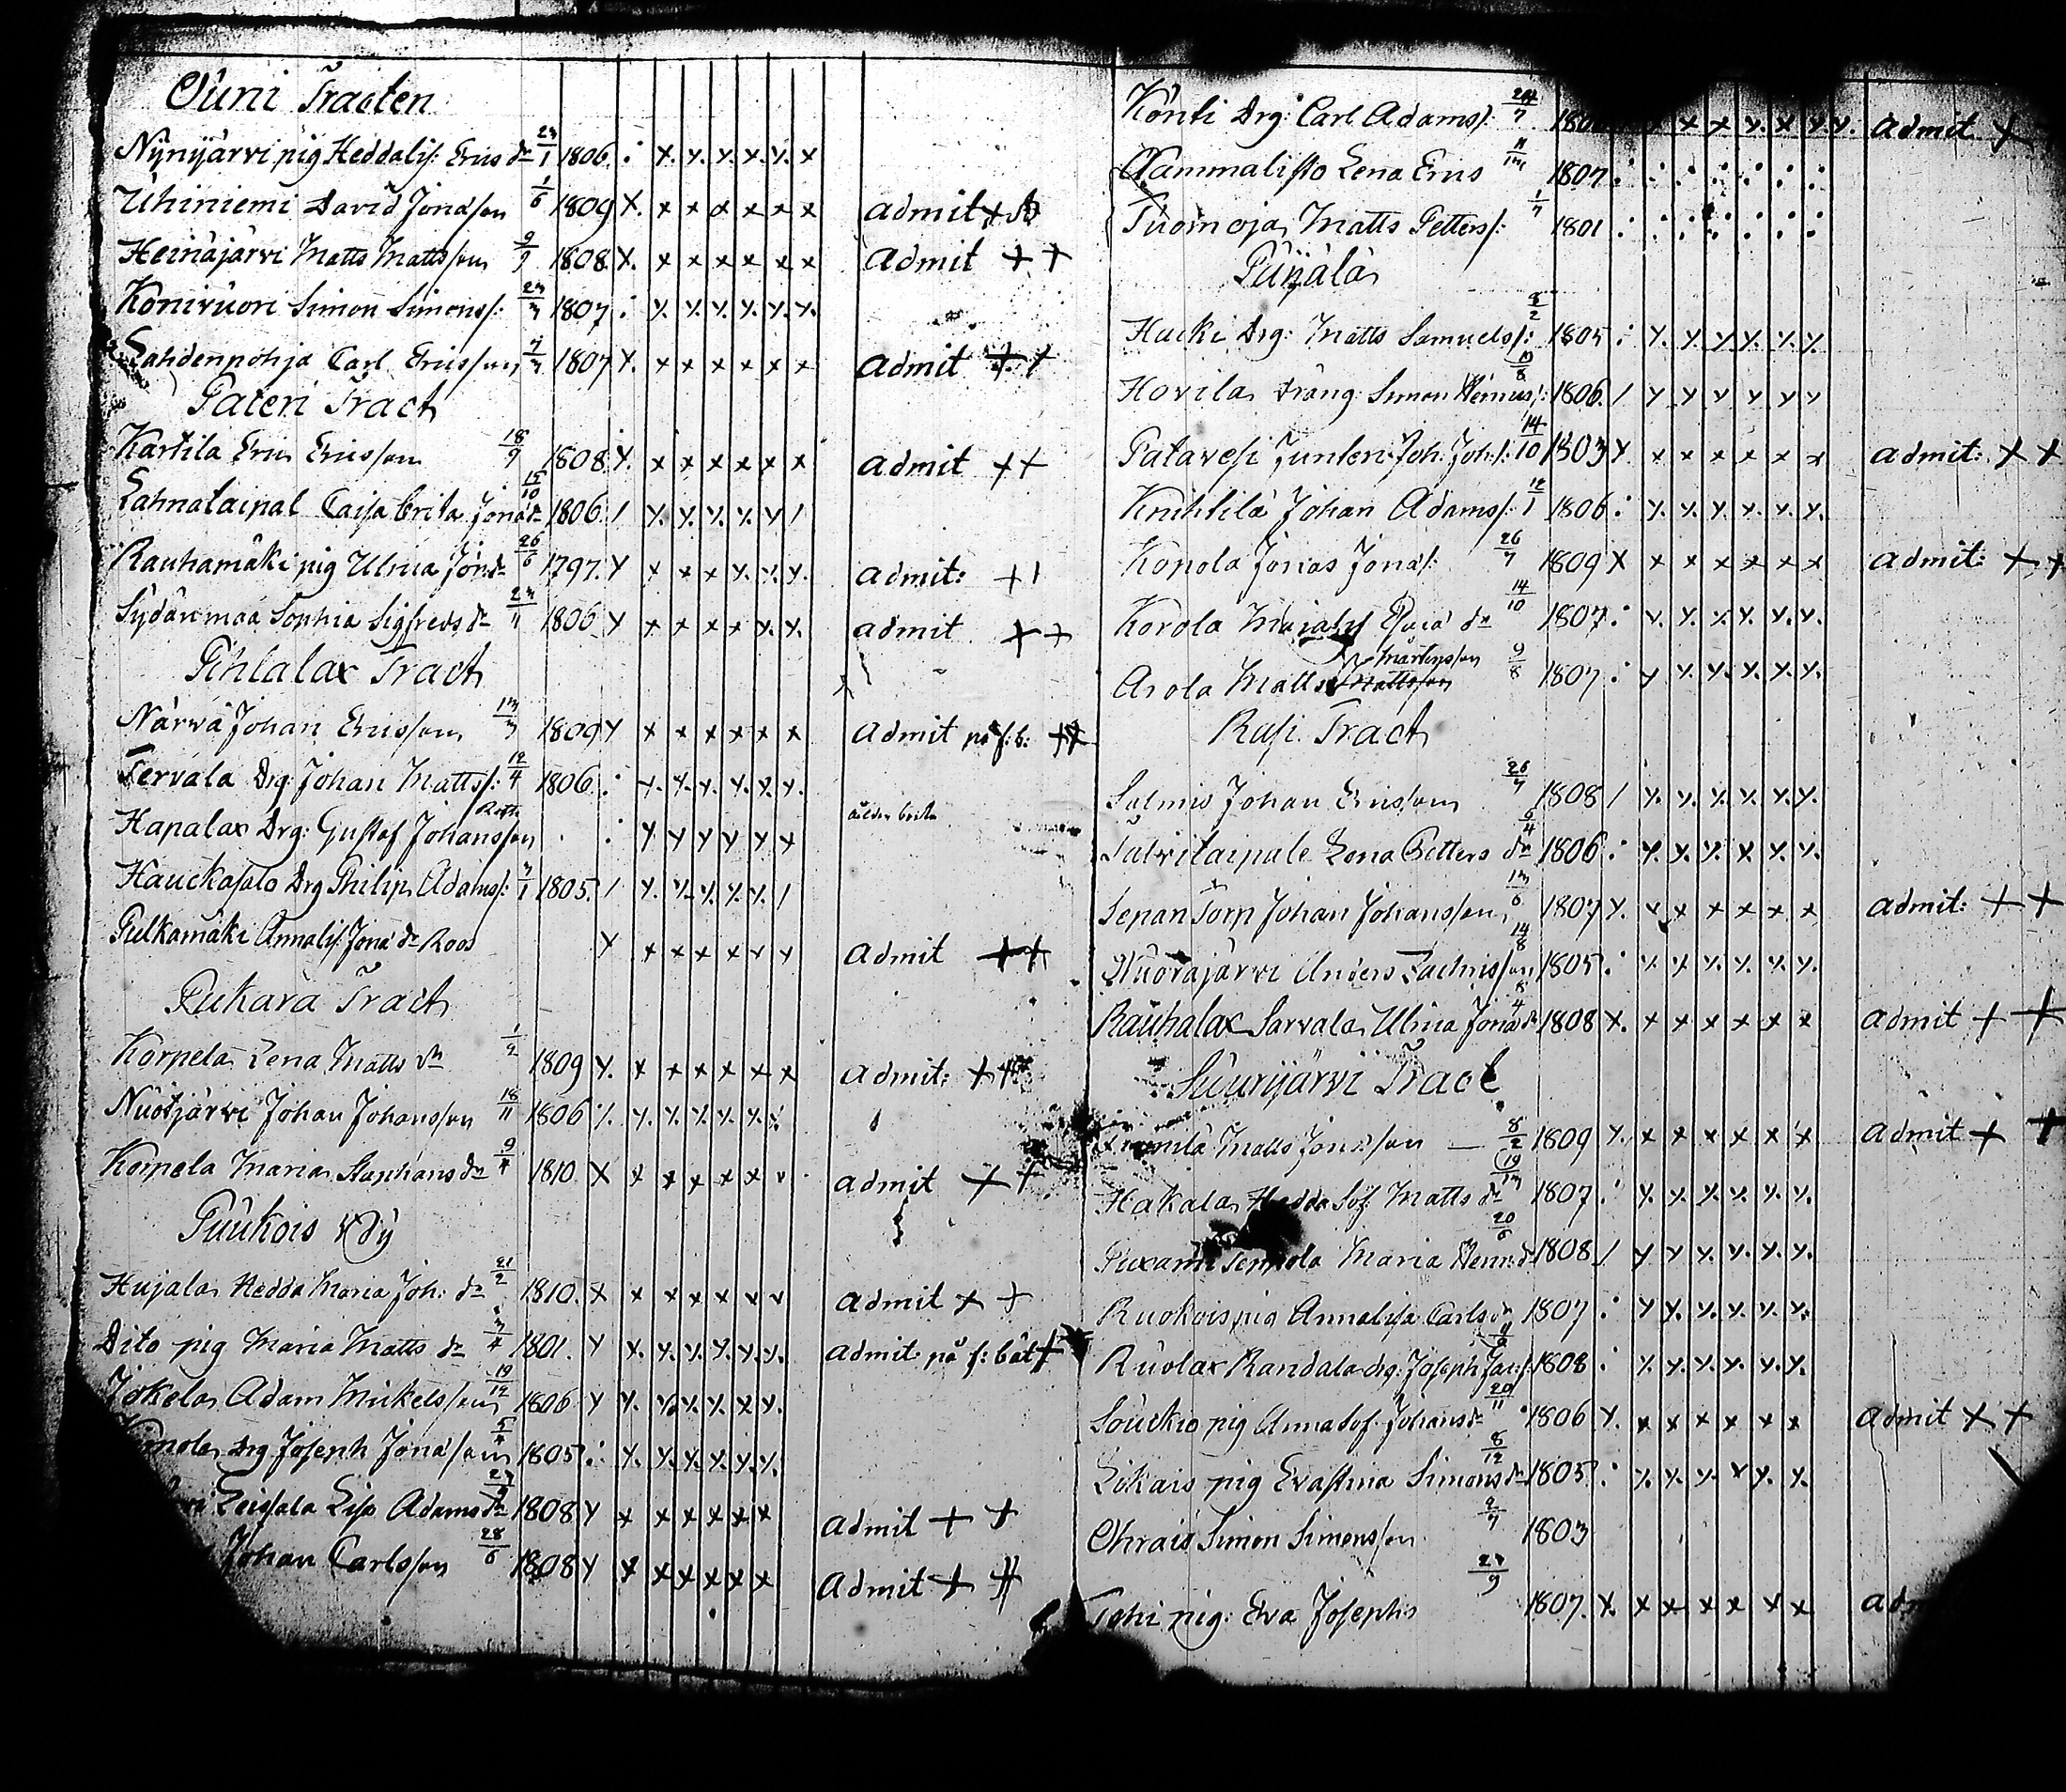 Ouni Tracten
Nynyjärvi pig Heddalis: Erics dr 23/1 1806. . x. y. y. y. y. x
Uhiniemi David Jonasson 1/6 1809 X. x x x x x x admit x
Heinäjärvi Matts Mattsson 9/9 1808 X. x x x x x x admit + +
Konivuori Simon Simonss: 23/3 1807 . y. y. y. y. y. y.
Lahdenpohja Carl Ericsson 7/3 1807 X. x x x x x x admit + +
Pateri Tract
Kartila Eric Ericsson 18/9 1808 X. x x x x x x admit + +
Lahnataipal Caisa Brita Jonadr 15/10 1806 / y. y. y. y. y /
Rauhamäki pig Ulrica Jonadr 26/6 1797. Y x x x y. y. y. admit: + +
Sydänmaa Sophia Sigfreds dr 23/11 1806 Y x x x x y. y. admit + +
Pihlalax Tract
Närvä Johan Ericsson 13/3 1809 Y x x x x x x admit på f: b: + +
Tervala Drg: Johan Mattss: 12/4 1806 . y. y. y. y. y. y.
Roth
Hapalax Drg: Gustaf Johansson . y y y y y y
Hauckasalo Drg Philip Adamss: 3/1 1805. / y. y. y. y. y. /
Pulkamäki Annalis: Jona dr Roos Y x x x x y y admit + +
Pukara Tract
Korpela Lena Matts dr 1/2 1809 Y. x x x x x x admit: + +
Nuotjärvi Johan Johansson 18/11 1806 /. y. y. y. y. y. y.
Korpela Maria Staphans dr 9/4 1810 X x x x x x admit + +
Puukois By
Hujala Hedda Maria Joh: dr 21/2 1810. X x x x x y y admit + +
Dito pig Maria Matts dr 3/4 1801. Y x. y. y. y. y. y. admit: på f: bät +
Jokela Adam Mickelsson 19/12 1806 Y y. y. y. y. x y.
drg Joseph Jonasson 5/4 1805 . y. y. y. y. y. y.
Leissala Lisa Adams dr 1808 Y x x x x x x admit + +
Johan Carlsson 28/6 1808 Y x x x x x x admit + +
Konti Drg: Carl Adamss: 24/7 x x y. x y. y. admit +
Nammalisto Lena Erics 1807 . : : : : : :
Tuomoja Matts Petterss: 1/7 1801 . : : : : : :
Pänälä
Hacki Drg: Matts Samuelss: 3/2 1805 . y. y. y. y. y. y.
Hovila dräng Simon Henricss: 1806. / y y y y y y
Patavesi Junkers Joh: Johs: 14/10 1803 Y. x x x x x x admit: + +
Knihtilä Johan Adamss: 12/1 1806 . y. y. y. y. y. y.
Konola Jonas Jonas: 26/7 1809 X x x x x x x admit: + +
Korola Majalis dr 14/10 1807 . y. y. y. y. y. y.
Mårtensson
Arola Matts Mattsson 9/8 1807 . y y. y. y. y. y.
Rasi Tract
Salmis Johan Ericsson 26/7 1808 / y. y. y. y. y. y.
Talvitaipale Lena Petters dr 6/4 1806 . y. y. y. x y. y.
Sepän Torp Johan Johansson 13/6 1807 Y. y x x x x x admit: + +
Nuorajärvi Anders Zachrisson 14/8 1805 . y. y. y. y. y. y.
Rauhalax Sarvala Ulrica Jona dr 8/4 1808 X. x x x x x x admit + +
Suurijärvi Tract
Matts Jonasson — 8/2 1809 Y. x x x x x x admit + +
Hakala Hedda Sof: Matts dr 19/3 1807 . y. y. y. y. y. y.
Maria Henr: dr 20/6 1808 / y y y. y. y. y.
Ruokois pig Annalisa Carls dr 1807 . y y. y. y. y. y.
Ruolax Randala drg: Joseph 11/9 1808 . y. y. y. y. y. y.
Souckio pig Anna Sof: Johans dr 20/11 1806 Y. x x x x x x admit + +
Likais pig Evastina Simons dr 8/12 1805 . y. y. y. y y. y.
Ohrais Simon Simonsson 2/7 1803
Tohi pig: Eva Josephs 23/9 1807. X. x x x x x x ad